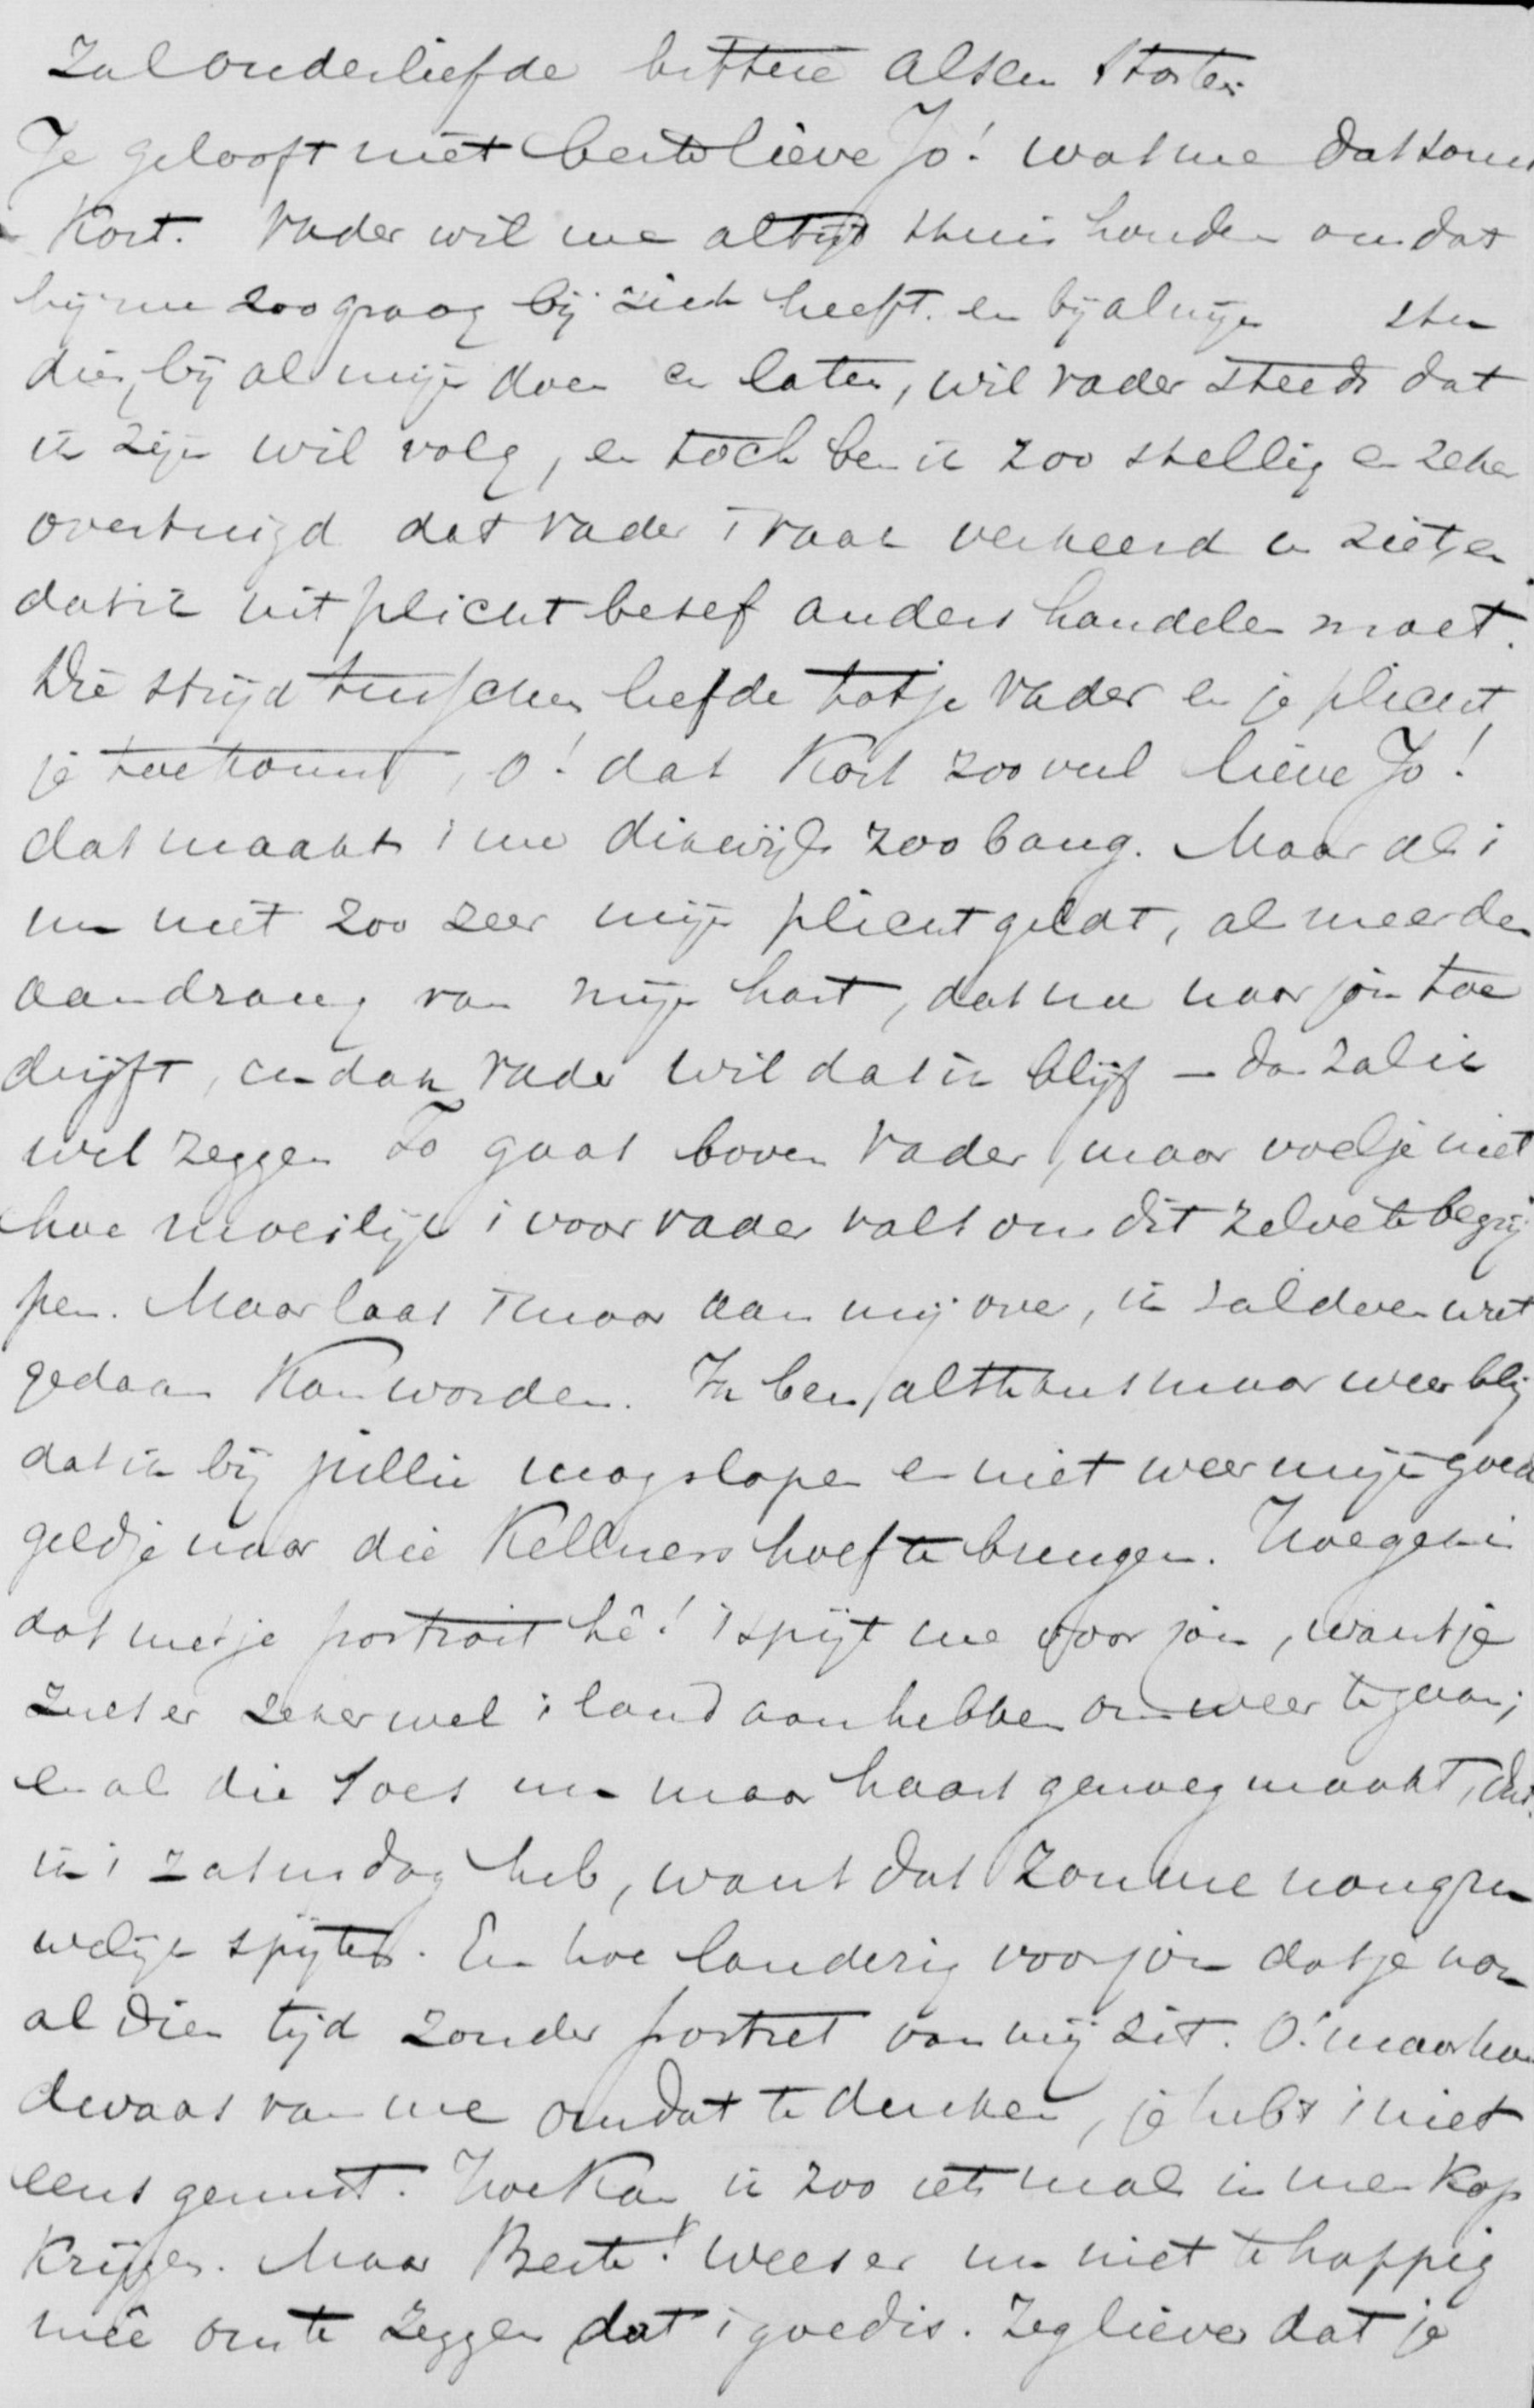 Zal ouderliefde bittere alsem storten
Je gelooft niet beste lieve Jo! wat me dat soms
kost. Vader wil me altijd thuis houden omdat
hij me zoo graag bij zich heeft. en bij al mijn stu
diën, bij al mijn doen en laten, wil vader steeds dat
ik zijn wil volg, en toch ben ik zoo stellig en zeker
overtuigd dat vader 't vaak verkeerd in ziet, en
dat ik uit plichtbesef anders handelen moet.
Die strijd tusschen liefde tot je vader en je plicht,
je toekomst, o! dat kost zooveel lieve Jo!
dat maakt 't me dikwijls zoo bang. Maar als 't
nu niet zoo zeer mijn plicht geldt, als meer den
aandrang van mijn hart, dat me naar jou toe
drijft, en dan vader wil dat ik blijf – dan zal ik
wel zeggen Jo gaat boven vader, maar voel je niet
hoe moeilijk 't voor vader valt om dit zelve te begrij
pen. Maar laat 't maar aan mij over, ik zal doen wat
gedaan kan worden. Ik ben, althans maar weer blij
dat ik bij jullie mag slapen en niet weer mijn goeie
geldje naar die Kellners hoef te brengen. Hoe gemeen
dat met je portrait hê! 't spijt me voor jou, want je
zult er zeker wel 't land aan hebben om weer te gaan;
en als die Soes nu maar haast genoeg maakt, dat
ik 't zaturdag heb, want dat zou me nou gru
welijk spijten. En hoe landerig voor jou dat je nou
al dien tijd zonder portret van mij zit. O! maar hoe
dwaas van me om dat te denken, je hebt 't niet
eens gemist. Hoe kan ik zoo iets mals in men kop
krijgen. Maar Beste! wees er nu niet te happig
meê om te zeggen dat 't goed is. Zeg liever dat je